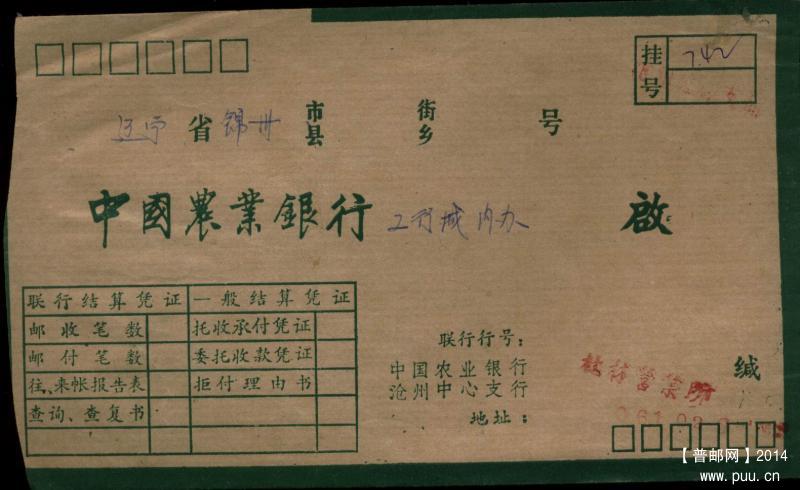 挂号 742
辽宁省锦州市县 街乡 号
中國農業銀行 工行城内办 啟
联行结算凭证 一般结算凭证
邮收笔数 托收承付凭证
邮付笔数 委托收款凭证
往、来帐报告表 拒付理由书
查询、查复书
联行行号：
中国农业银行
沧州中心支行 缄
地址：
营业所
【普邮网】2014
www.puu.cn